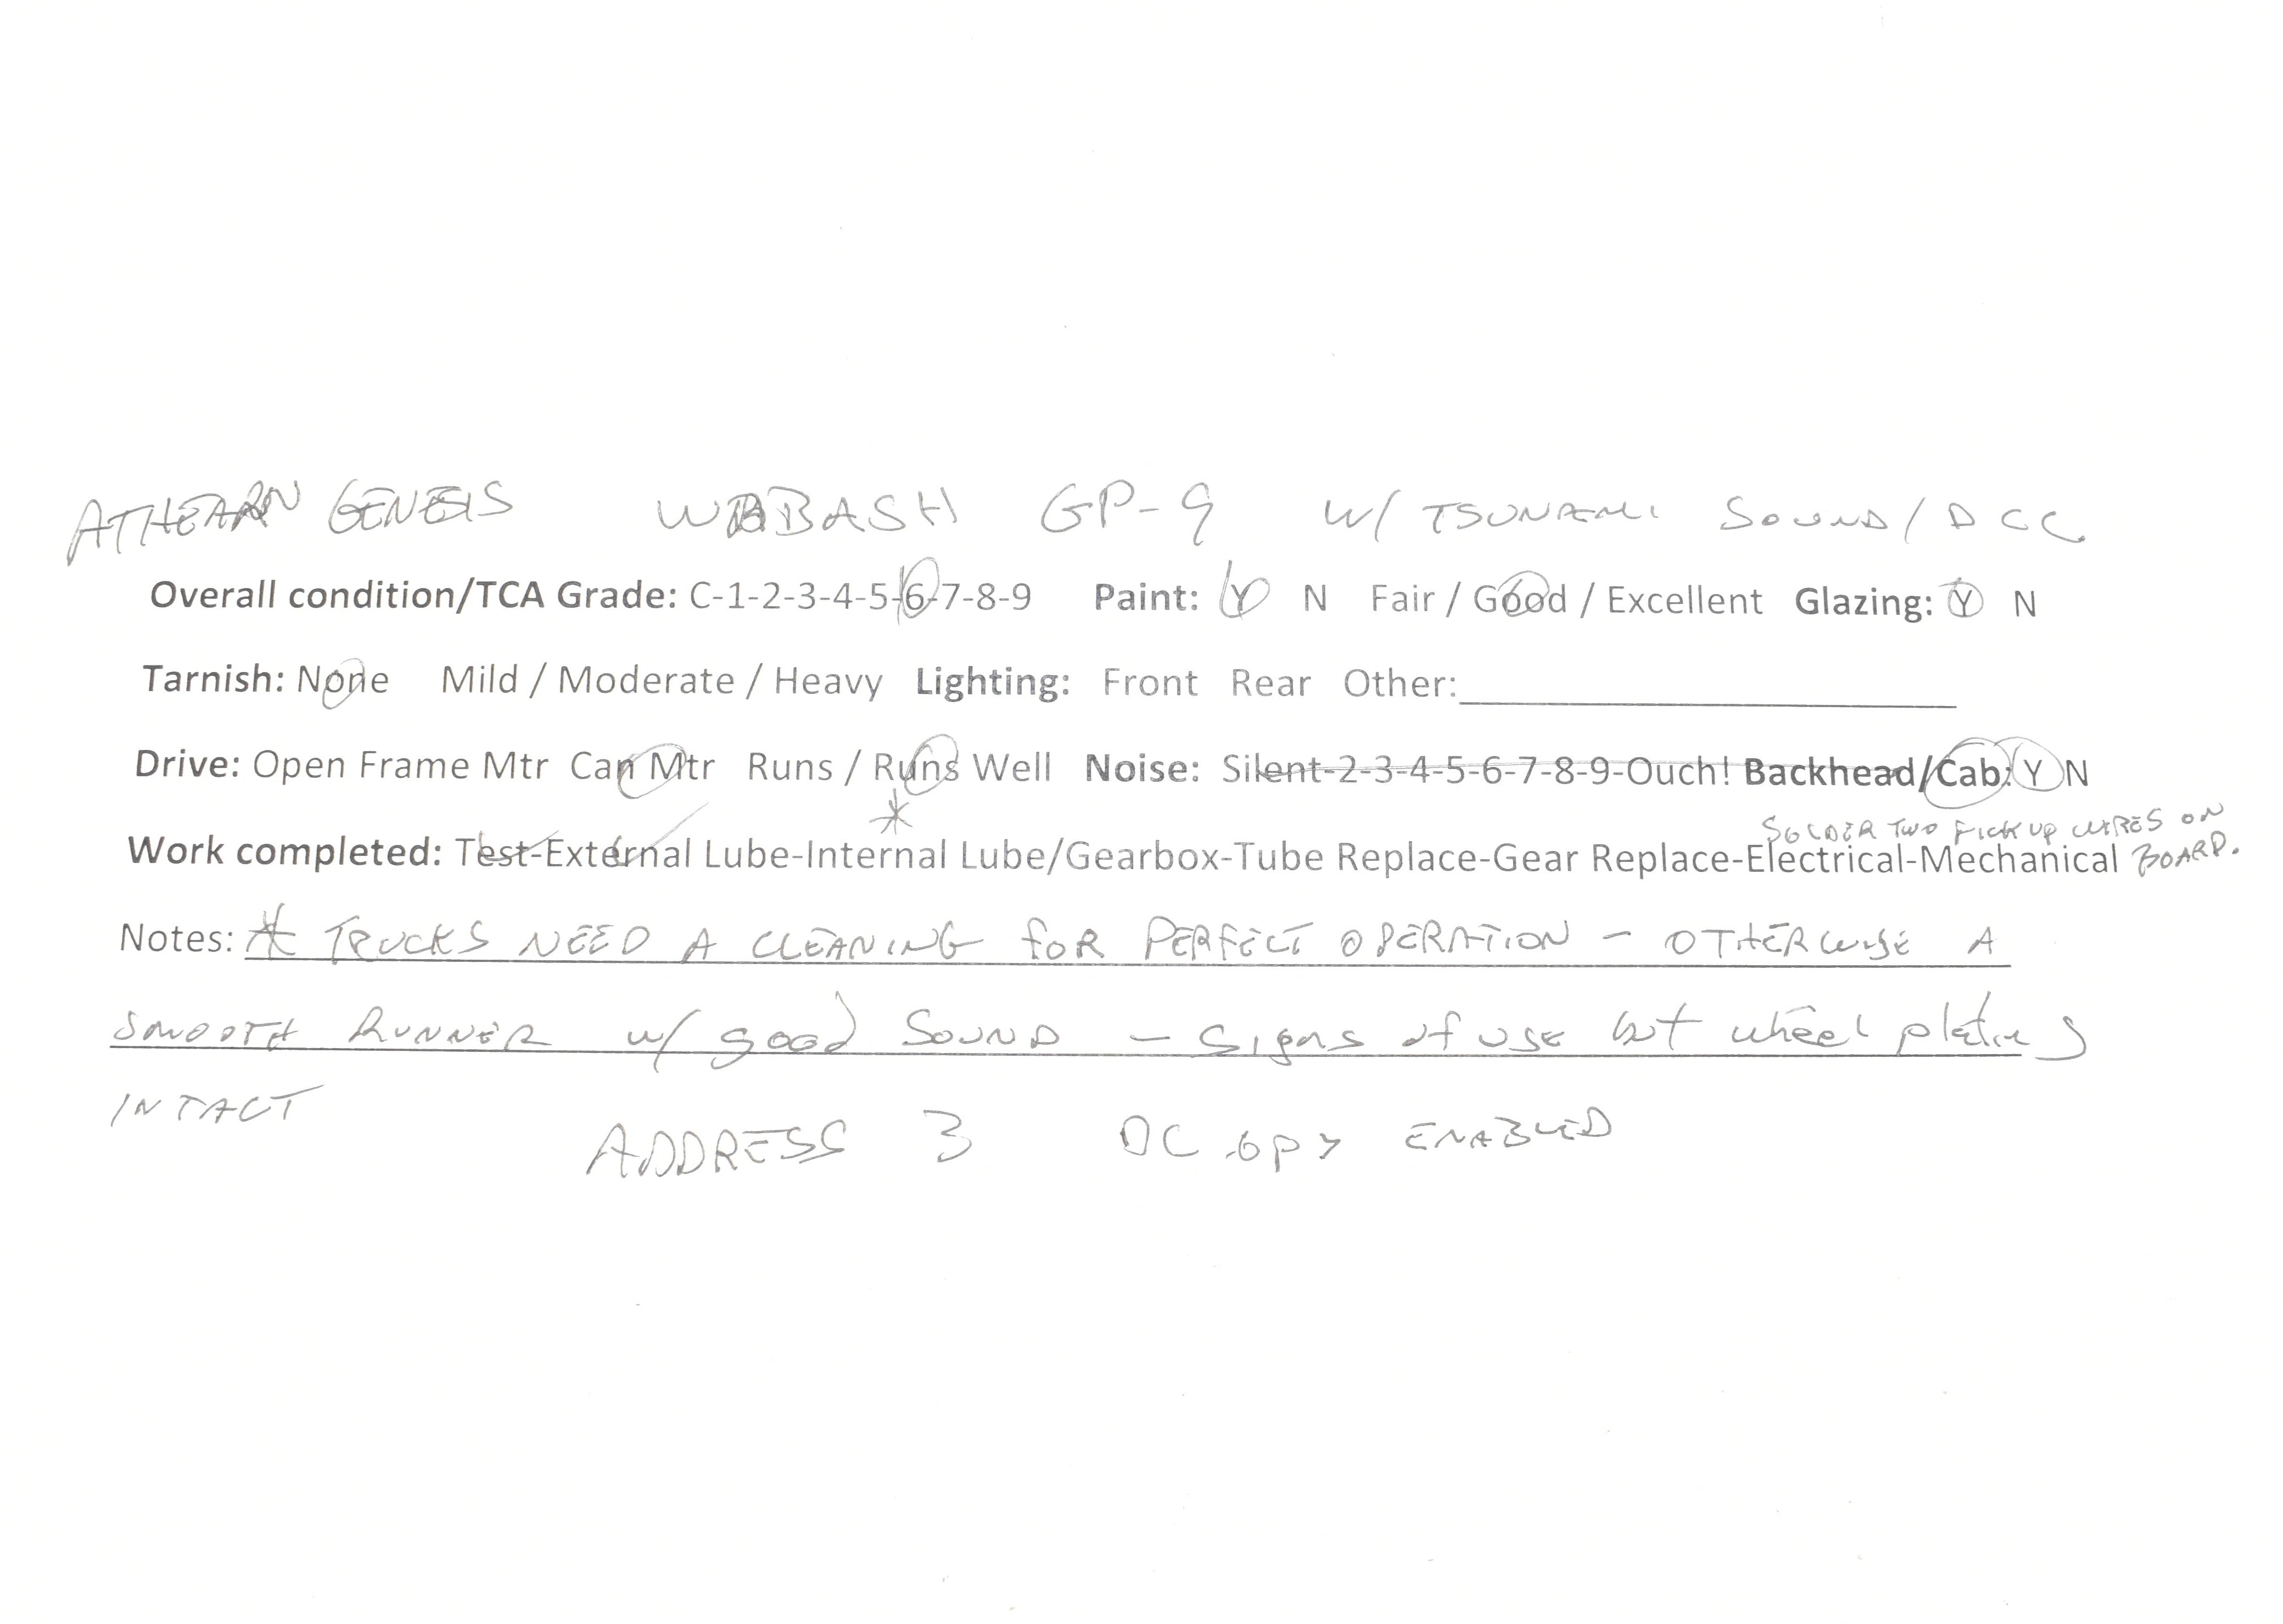 ATHEARN GENESIS WABBASH GP-9 W/ TSUNAMI SOUND/DCC
Overall condition/TCA Grade: C-1-2-3-4-5-6-7-8-9 Paint: Y N Fair / Good / Excellent Glazing: Y N
Tarnish: None Mild / Moderate / Heavy Lighting: Front Rear Other:
Drive: Open Frame Mtr Can Mtr Runs / Runs Well Noise: Silent-2-3-4-5-6-7-8-9-Ouch! Backhead/Cab: Y N
*
SOLDER TWO PICK UP WIRES ON
Work completed: Test-External Lube-Internal Lube/Gearbox-Tube Replace-Gear Replace-Electrical-Mechanical BOARD.
Notes: * TRUCKS NEED A CLEANING FOR PERFECT OPERATION - OTHERWISE A
SMOOTH RUNNER w/ good SOUND - Signs of use but wheel plating
INTACT
ADDRESS 3 DC ENABLED